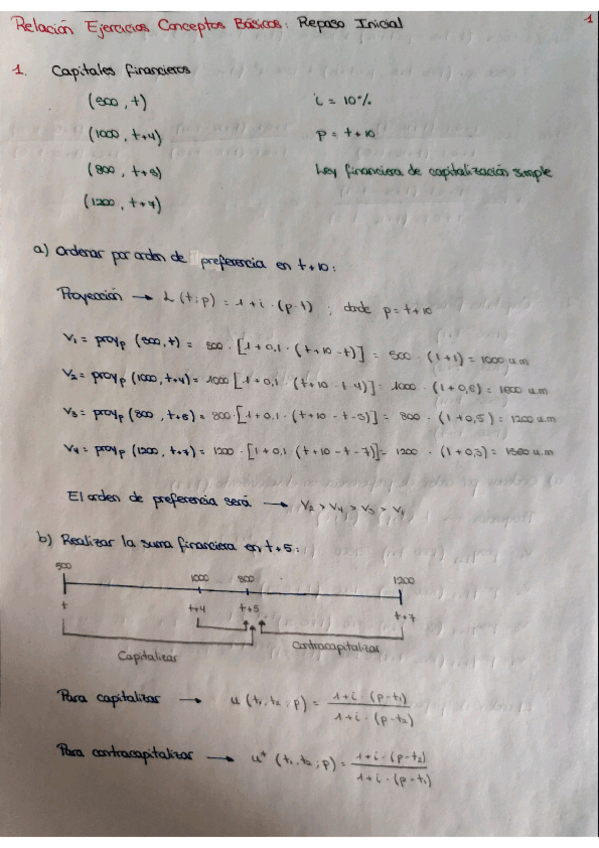 Relación Ejercicios Conceptos Básicos: Repaso Inicial
1
1. Capitales financieros
(500, t) i = 10%
(1000, t+4) p = t+10
(800, t+5) Ley financiera de capitalización simple
(1200, t+7)
a) Ordenar por orden de preferencia en t+10:
Proyección → L(t;p) = 1+i·(p-t) ; donde p=t+10
V1 = proyp (500, t) = 500·[1+0,1·(t+10-t)] = 500·(1+1) = 1000 u.m
V2 = proyp (1000, t+4) = 1000[1+0,1·(t+10-t-4)] = 1000·(1+0,6) = 1600 u.m
V3 = proyp (800, t+5) = 800·[1+0,1·(t+10-t-5)] = 800·(1+0,5) = 1200 u.m
V4 = proyp (1200, t+7) = 1200·[1+0,1·(t+10-t-7)] = 1200·(1+0,3) = 1560 u.m
El orden de preferencia será → V2 > V4 > V3 > V1
b) Realizar la suma financiera en t+5:
500 1000 800 1200
t t+4 t+5 t+7
Capitalizar Contracapitalizar
Para capitalizar → u(t1,t2;p) = 1+i·(p-t1) / 1+i·(p-t2)
Para contracapitalizar → u*(t1,t2;p) = 1+i·(p-t2) / 1+i·(p-t1)